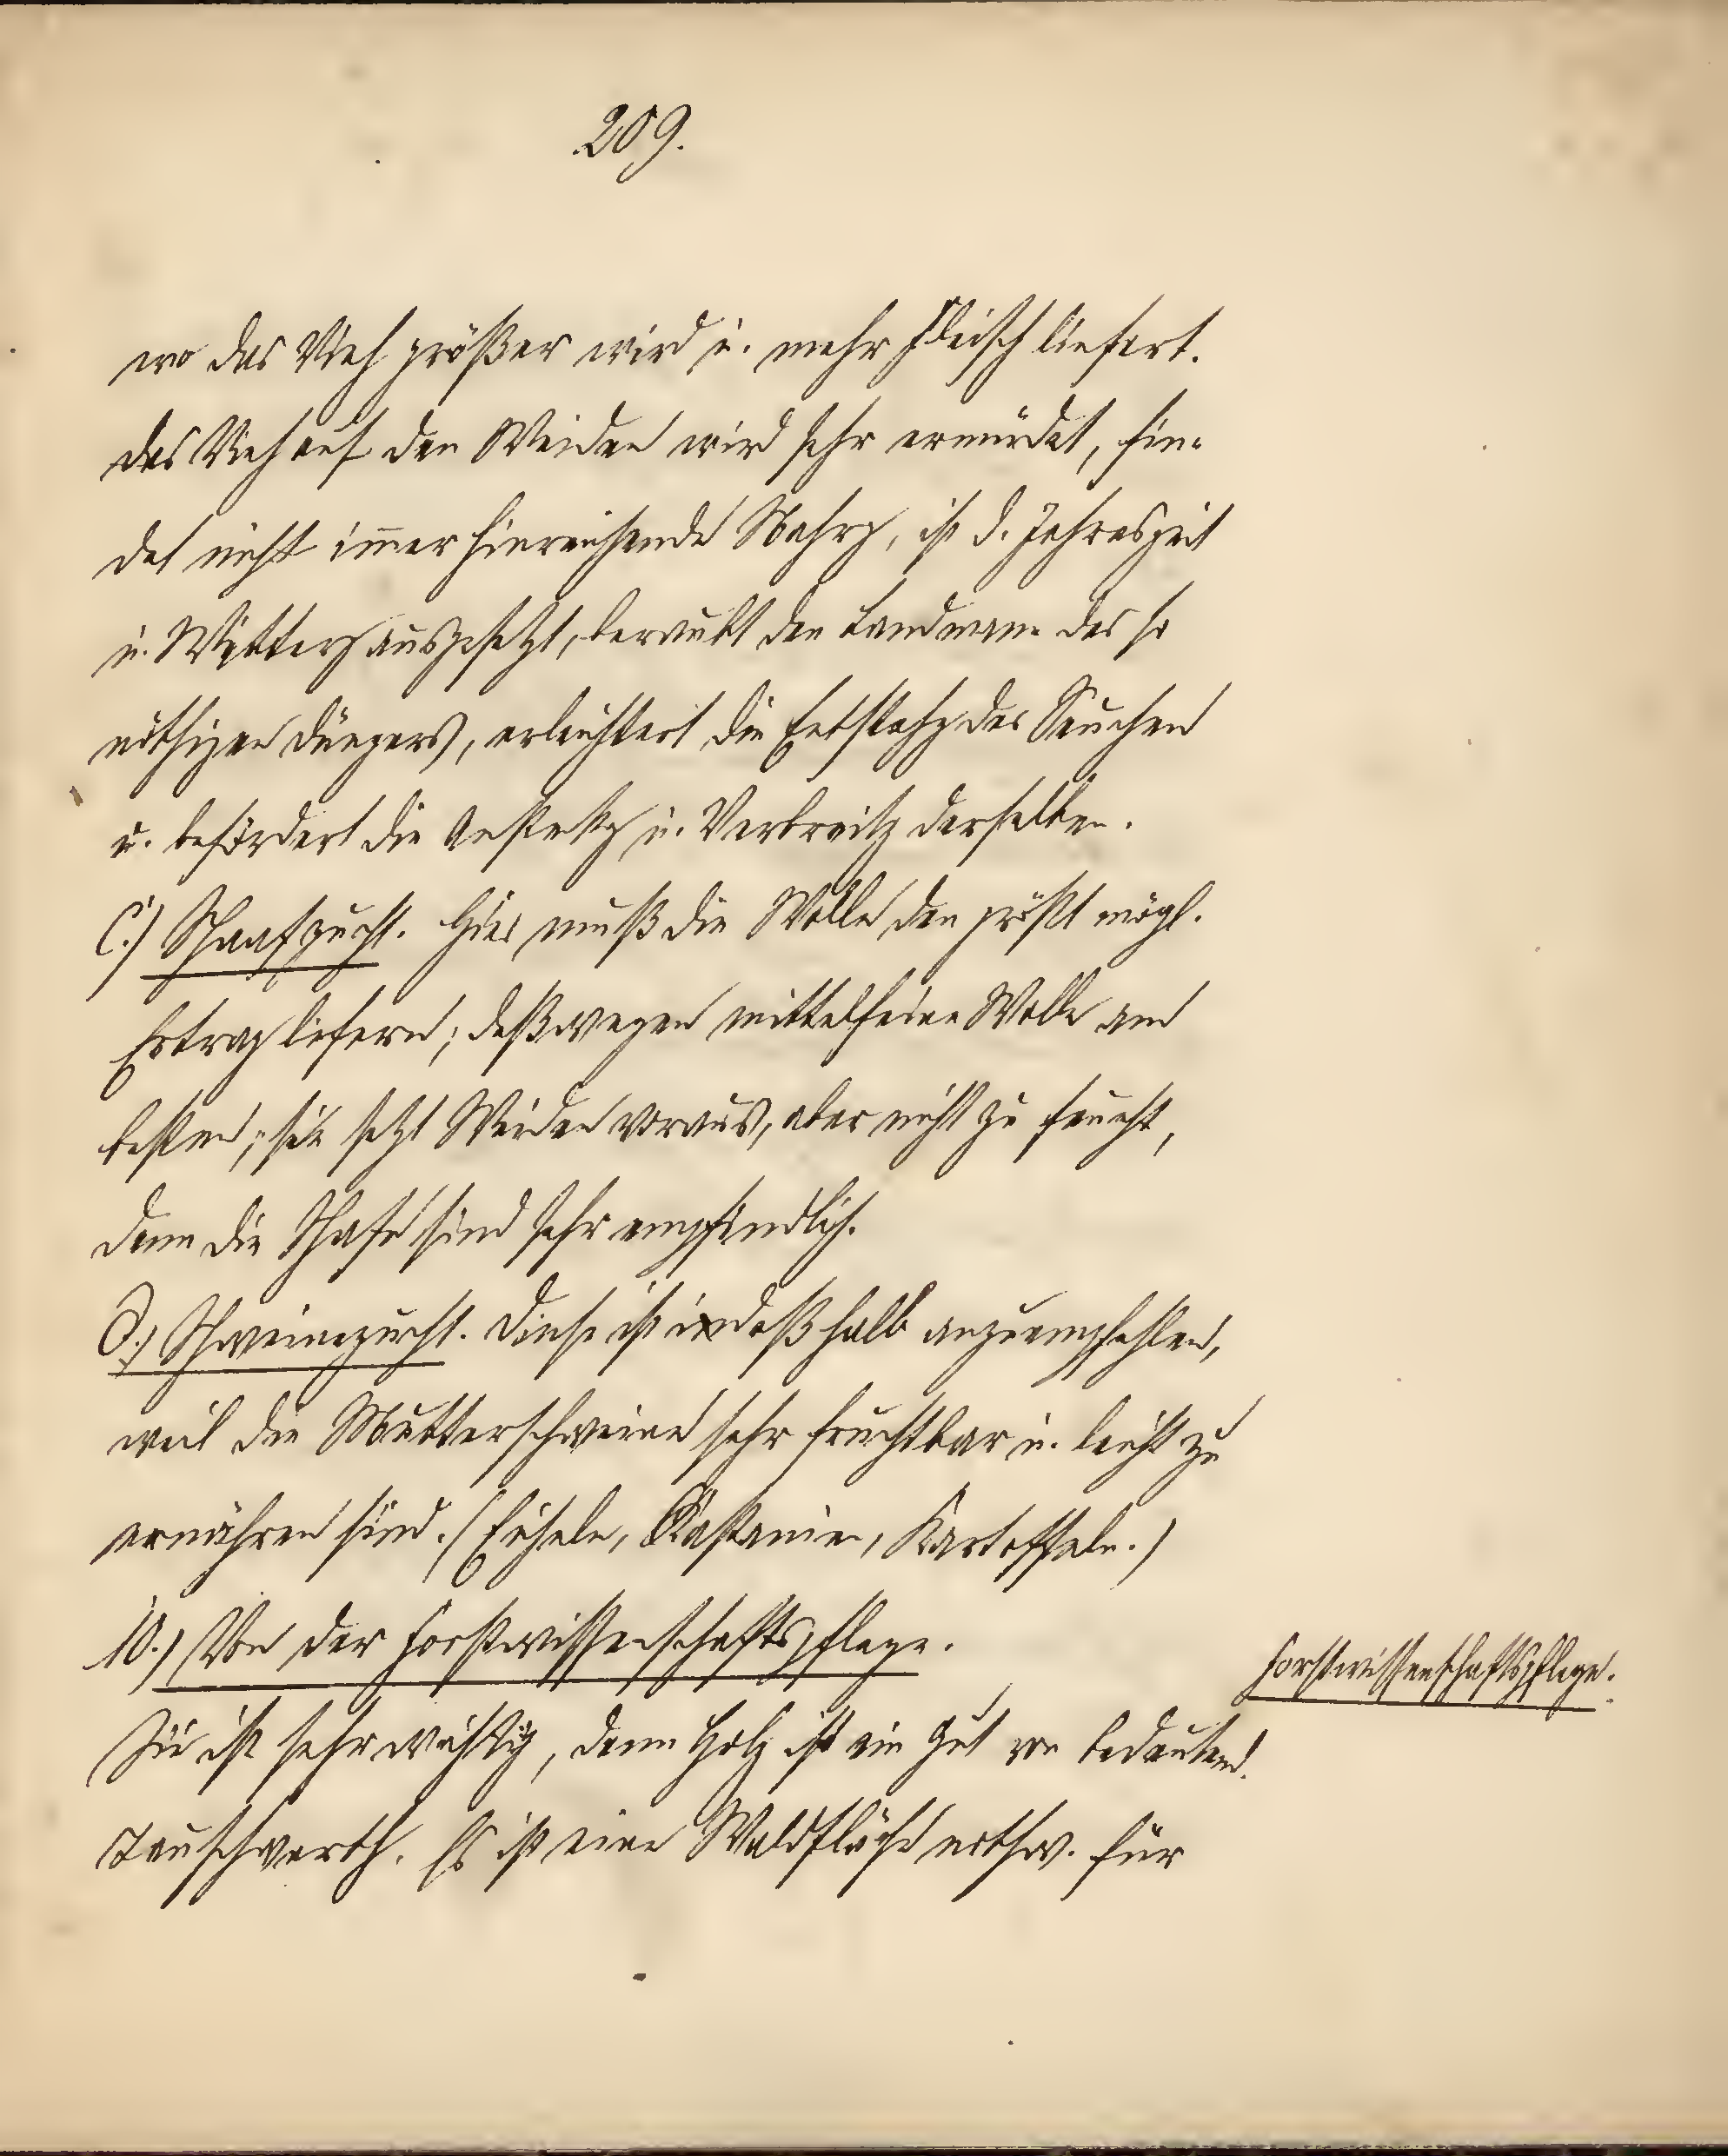 209.
wo das Vieh größer wird u. mehr Fleisch liefert.
Das Vieh auf den Weiden wird sehr ermüdet, fin-
det nicht im̅er hinreichende Nahrg, ist d. Jahreszeit
u. Witterg ausgesetzt, beraubt den Landmann des so
nöthigen Düngers, erleichtert die Entstehg der Seuchen
u. befördert die Ansteckg u. Verbreitg derselben.
C.) Schaafzucht. Hier muß die Wolle den größt mögl.
Ertrag liefern; deßwegen mittelfeine Wolle am
besten; sie setzt Weiden voraus, aber nicht zu feucht,
denn die Schafe sind sehr empfindlich.
d.) Schweinezucht. Diese ist deßhalb anzuempfehlen,
weil die Mutterschweine sehr fruchtbar u. leicht zu
ernähren sind. (Eicheln, Kastanien, Kartoffeln.)
10.) Von der Forstwissenschaftspflege.
Forstwissenschaftspflege.
Sie ist sehr wichtig, denn Holz ist ein Gut von bedeutend.
Tauschwerth. Es ist eine Waldfläche nothw. für